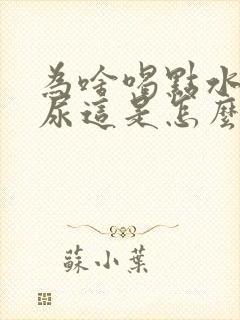 為啥喝點水
尿這是怎麼
蘇小葉